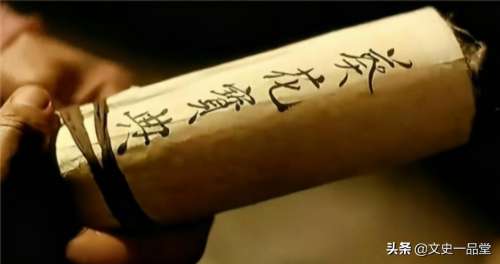 葵花寶典
头条 @文史一品堂